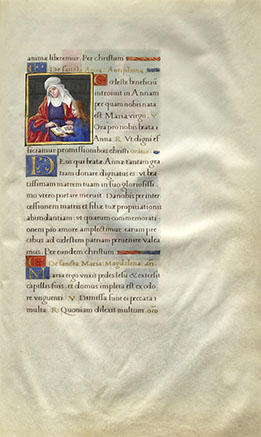 animæ liberemur. Per christum
De sancta Anna. Antiphona
Cœleste beneficiū
introiuit in Annam
per quam nobis nata
est Maria virgo. V
Ora pro nobis beata
Anna R Vt digni ef
ficiamur promissionibus christi
Deus qui beatæ Annæ tantam gra
tiam donare dignatus es: vt bea
tissimam matrem tuam in suo gloriosissi
mo vtero portare meruit. Da nobis per inter
cessionem matris et filiæ tuæ propitiationis
abundantiam: vt quarum commemorati
onem pio amore amplectimur earum pre
cibus ad cœlestem patriam peruenire valea
mus. Per eundem christum
De sancta Maria Magdalena an
Maria ergo vnxit pedes Iesu et exter
capillis suis et domus impleta est ex odo
re vnguenti. V Dimissa sunt ei peccata
multa. R: Quoniam dilexit multum oro